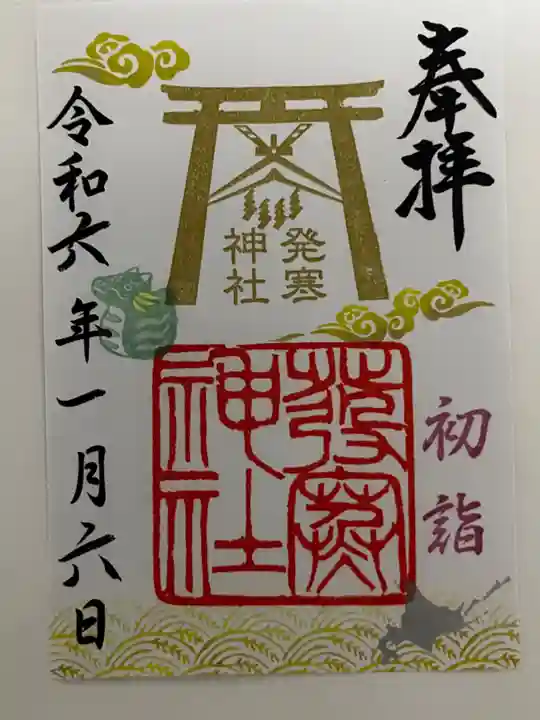 奉拝
発寒
神社
初詣
發寒
神社
令和六年一月六日